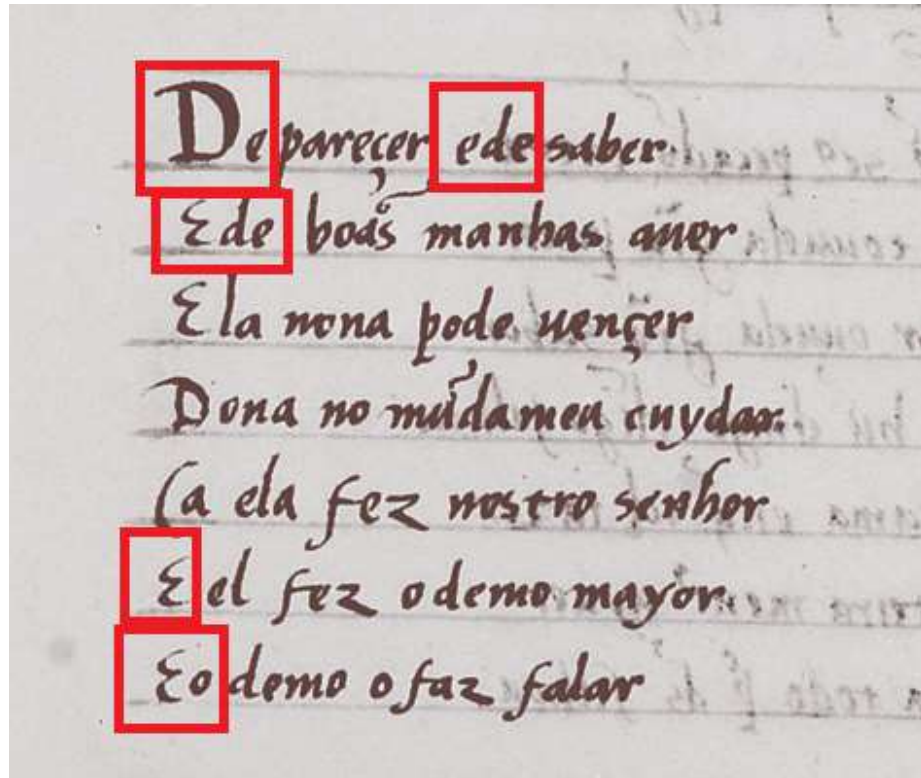 De pareçer ede saber
Ede boas̃ manhas auer
Ela nona pode uençer
Dona no mũdameu cuydar.
Ca ela fez nostro senhor
E el fez odemo mayor.
Eo demo ofaz falar